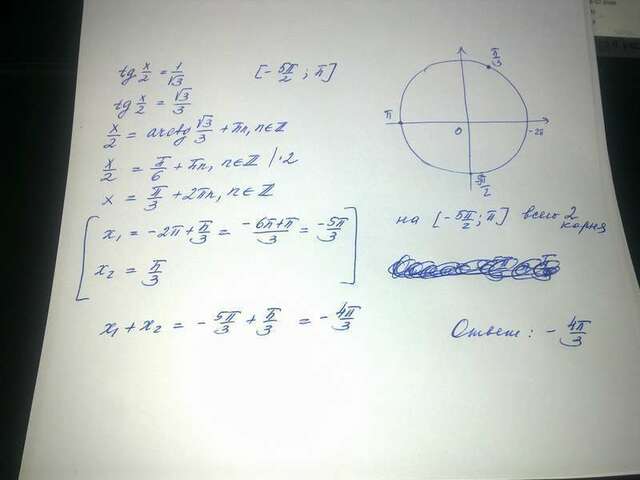 tg x/2 = 1/√3 [-5π/2 ; π]
tg x/2 = √3/3
x/2 = arctg √3/3 + πn, n∈Z
x/2 = π/6 + πn, n∈Z |·2
x = π/3 + 2πn, n∈Z
x₁ = -2π + π/3 = -6π+π/3 = -5π/3
x₂ = π/3
x₁ + x₂ = -5π/3 + π/3 = -4π/3
π/3
π
0
-2π
-5π/2
на [-5π/2 ; π] всего 2
корня
Ответ: -4π/3